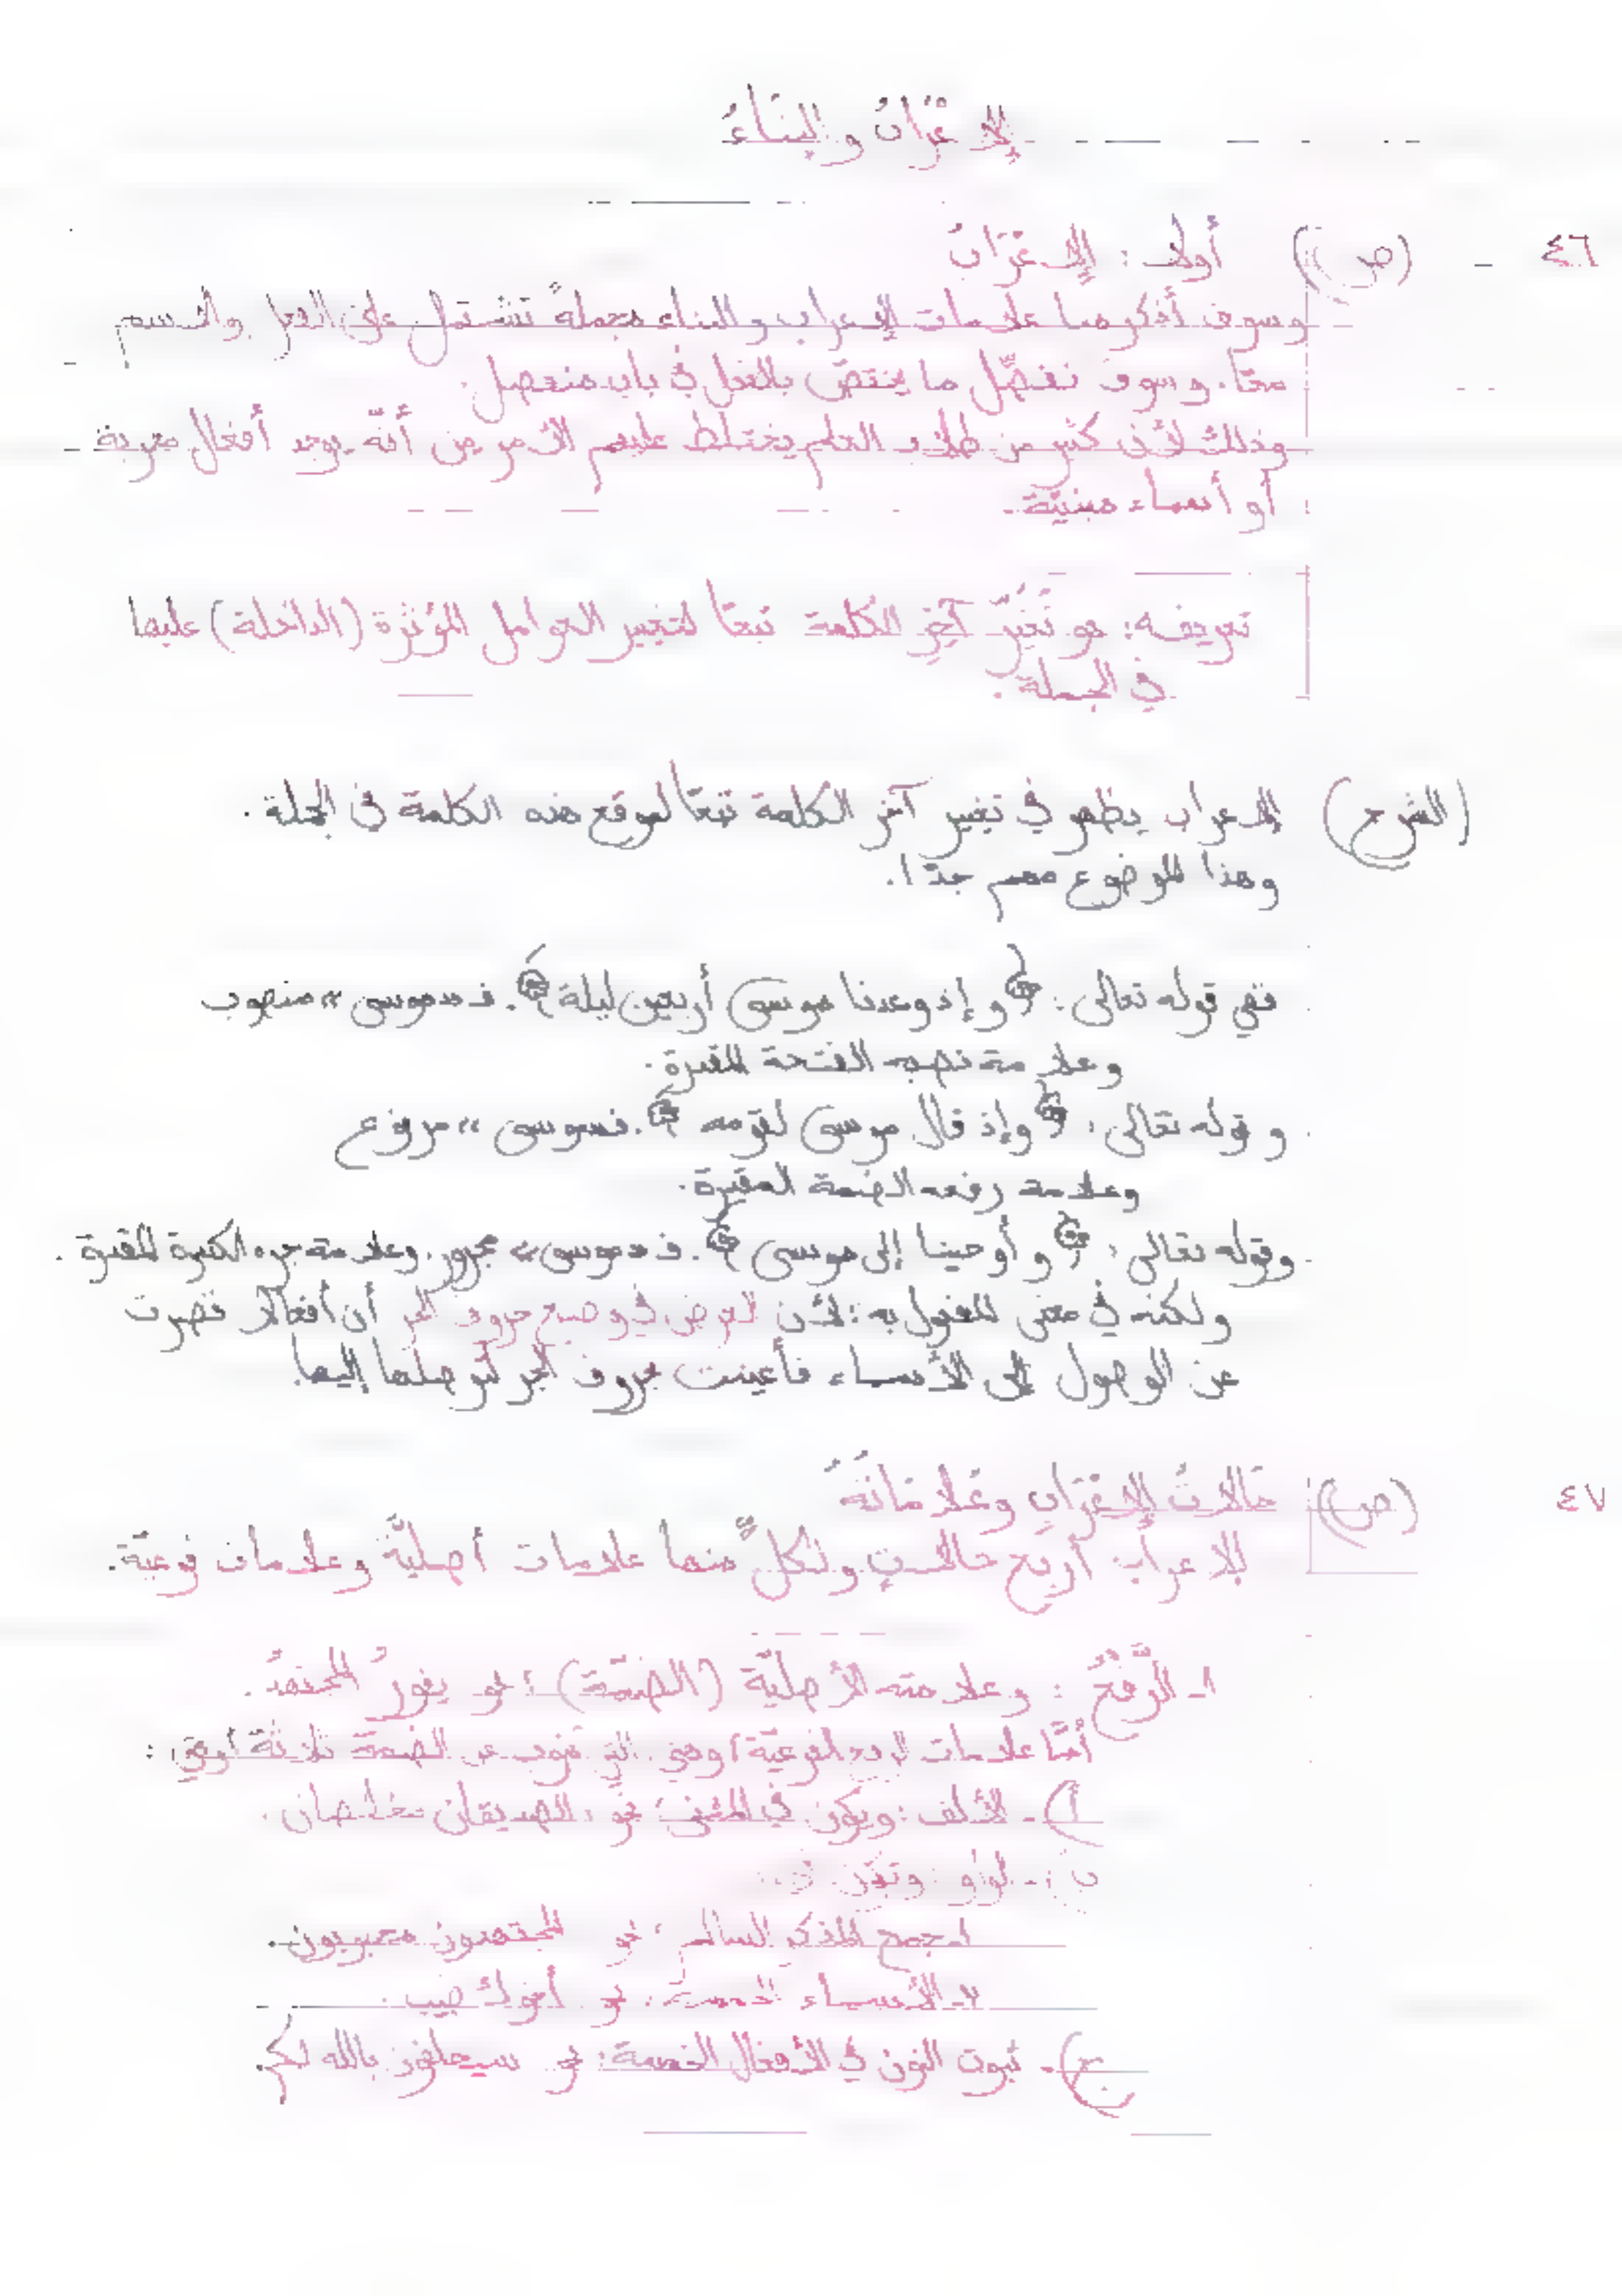 الإِعْرَابُ والبِنَاءُ
٤٦ - (ص) أولا: الإِعْرَابُ
وسوف أذكر هنا علامات الإعراب والبناء مجملةً تشتمل على الفعل والاسم
معًا. وسوف نفصّل ما يختصّ بالفعل في باب منفصل.
وذلك لأن كثير من طلاب العلم يختلط عليهم الأمر من أنّه يوجد أفعال معربة
أو أسماء مبنيّة.
تعريفه: هو تَغَيُّرُ آخِرِ الكلمة تبعًا لتغيير العوامل المؤثرة (الداخلة) عليها
في الجملة.
(الشرح) الإعراب يظهر في تغيير آخر الكلمة تبعًا لموقع هذه الكلمة في الجملة.
وهذا الموضوع مهم جدًا.
ففي قوله تعالى: ﴿وإذ وعدنا موسى أربعين ليلة﴾. فـ «موسى» منصوب
وعلامة نصبه الفتحة المقدرة.
وقوله تعالى: ﴿وإذ قال موسى لقومه﴾. فـموسى» مرفوع
وعلامة رفعه الضمة المقدرة.
وقوله تعالى: ﴿وأوحينا إلى موسى﴾. فـ «موسى» مجرور. وعلامة جره الكسرة المقدرة.
ولكنه في معنى المفعول به: لأن الغرض في وضع حروف الجر أن أفعالا قصرت
عن الوصول إلى الأسماء فأعينت بحروف الجر لتوصلها إليها.
٤٧ (ص) حَالَاتُ الإِعْرَابِ وعَلَامَاتُهُ
للإعراب أربع حالاتٍ ولكلٍّ منها علامات أصليّة وعلامات فرعيّة.
١- الرَّفْعُ: وعلامته الأصليّة (الضمّة)؛ نحو يفوزُ المجتهدُ.
أمّا علامات الفرعيّة وهي التي تنوب عن الضمة ثلاثة وهي:
أ)- الألف: ويكون في المثنى؛ نحو: الصديقان مخلصان.
ب)- الواو: وتكون في:
١- جمع المذكر السالم؛ نحو المجتهدون محبوبون.
٢- الأسماء الخمسة؛ نحو أخوك طبيب.
ج)- ثبوت النون في الأفعال الخمسة: نحو سيحلفون بالله لكم.